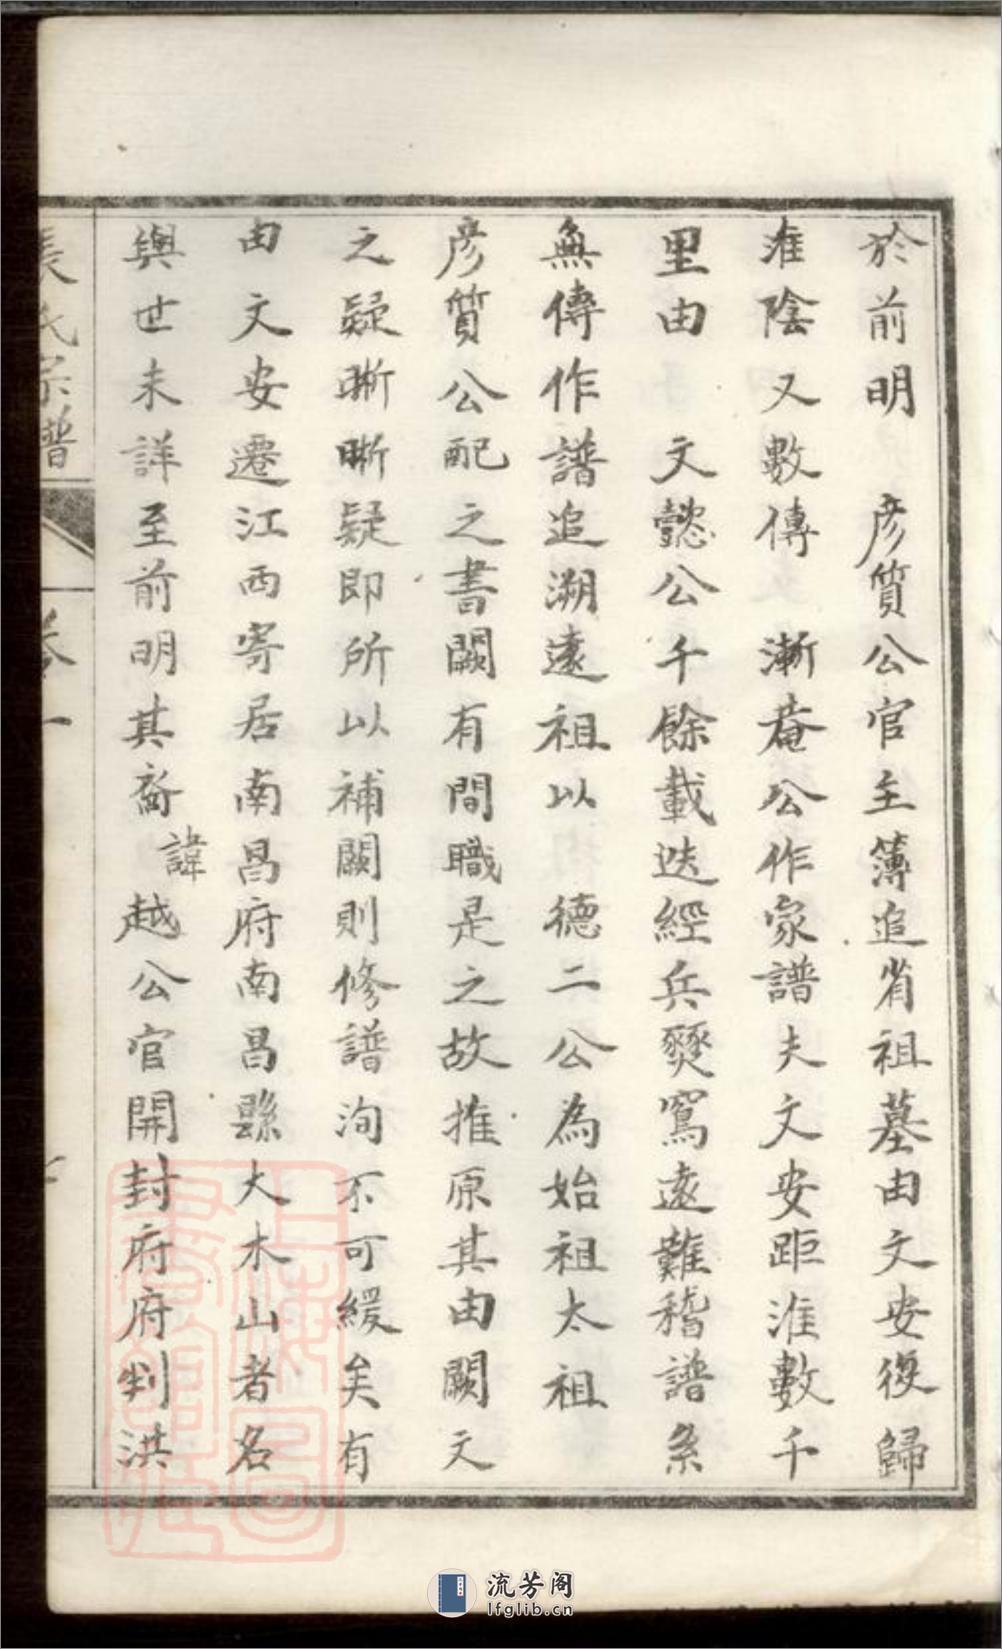 於前明　彥質公官主簿追省祖墓由文安復歸
淮陰又數傳　漸菴公作家譜夫文安距淮數千
里由　文懿公千餘載迭經兵燹寫遠難稽譜系
無傳作譜追溯遠祖以　德二公為始祖太祖
彥質公配之書闕有間職是之故推原其由闕文
之疑晰晰疑即所以補闕則修譜洵不可緩矣有
由文安遷江西寄居南昌府南昌縣大木山者名
與世未詳至前明其裔諱越公官開封府府判洪
張氏宗譜
卷一
上海圖書館藏
流芳阁
lfglib.cn